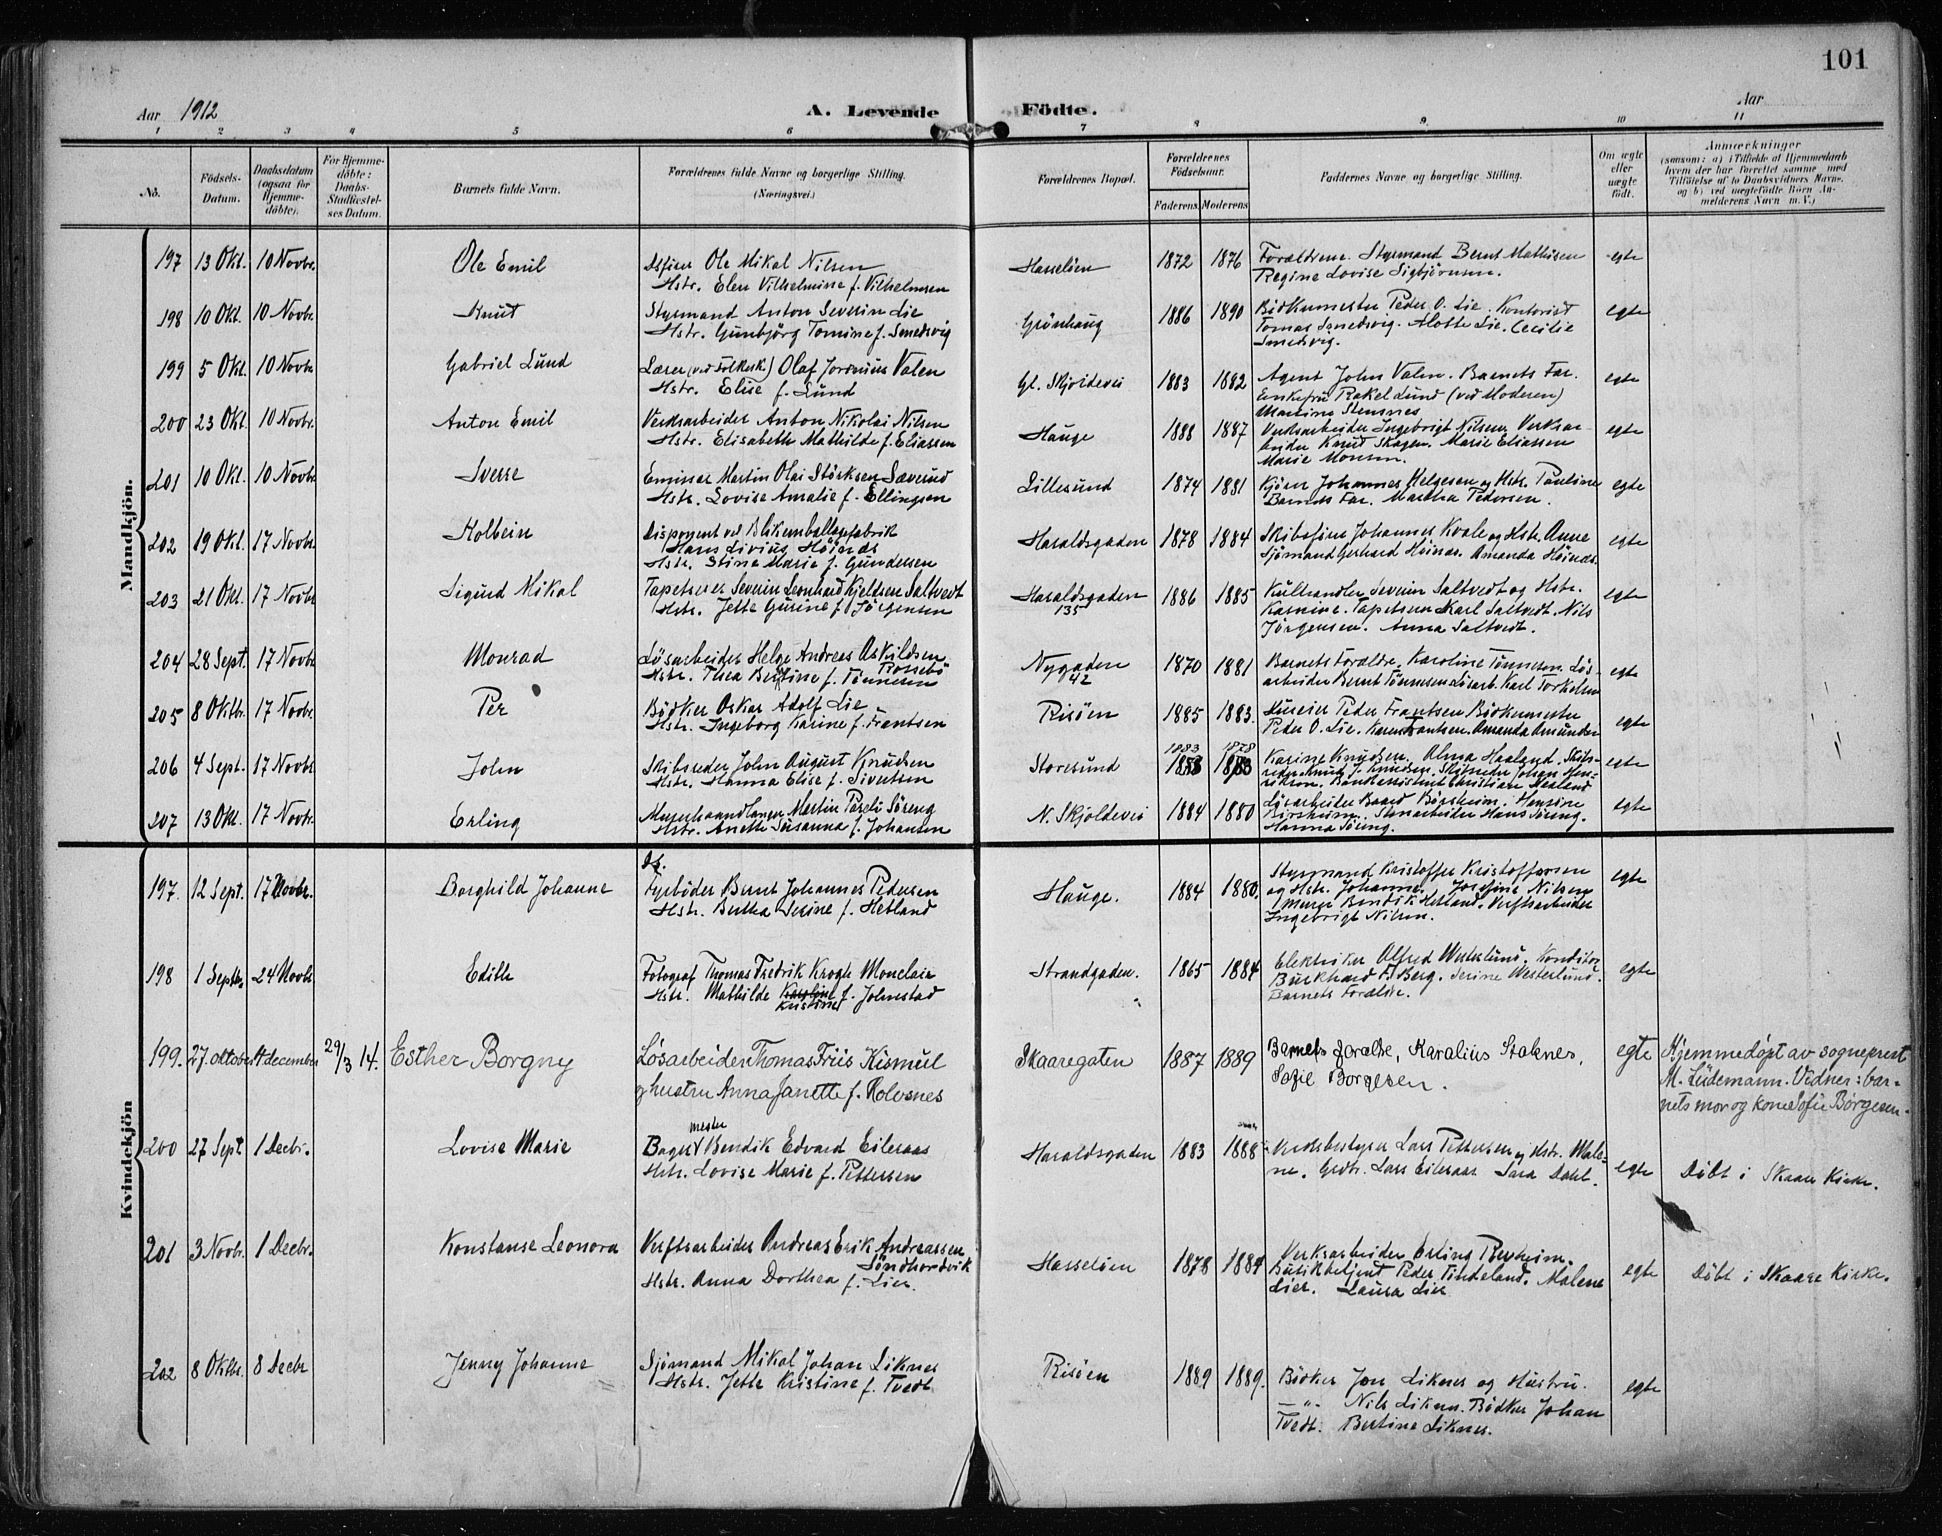 101
Aar 1912
A. Levende
Födte.
Aar
1 2 3 4 5 6 7 8 9 10 11
No.
Födsels-Datum.
Daabsdatum (ogsaa for Hjemme-döbte).
For Hjemme-döbte: Daabs-Stadfæstel-ses Datum.
Barnets fulde Navn.
Forældrenes fulde Navne og borgerlige Stilling. (Næringsvei.)
Forældrenes Bopæl.
Forældrenes Födselsaar.
Faderens Moderens
Faddernes Navne og borgerlige Stilling.
Om ægte eller uægte födt.
Anmærkninger
(saasom: a) i Tilfælde af Hjemmedaab
hvem der har forrettet samme med
Tilföielse af to Daabsvidners Navne,
og b) ved uægtefödte Börn An-
melderens Navn m. V.)
Mandkjön.
197 13 Okt. 10 Novbr. Ole Emil
Ole Mikal Nilsen
Hstr. Elen Vilhelmine f. Vilhelmsen
Hasselöen 1872 1876
Forældrene. Styrmand Bernt Mathisen
Regine Lovise Sigbjörnsen.
egte
198 10 Okt. 10 Novbr. Knut
Styrmand Anton Severin Lie
Hstr. Gunbjörg Tomine f. Smedsvig
Grönhaug 1886 1890
Bödkermester Peder O. Lie. Kontorist
Tomas Smedsvig. Alotte Lie. Cecilie
Smedsvig.
egte
199 5 Okt. 10 Novbr. Gabriel Lund
Lærer (ved Folkesk.) Olaf Valen
Hstr. Elise f. Lund
Gl. Skjoldevei 1883 1882
Agent John Valen. Barnets Far.
Enkefru Rakel Lund (ved Moderen)
Martine Stensnes
egte
200 23 Okt. 10 Novbr. Anton Emil
Verksarbeider Anton Nikolai Nilsen
Hstr. Elisabeth Mathilde f. Eliassen
Hauge 1888 1887
Verksarbeider Ingebrigt Nilsen, Verksar-
beider Knud Skagen. Marie Eliassen
Marie Monsen.
egte
201 10 Okt. 10 Novbr. Sverre
Martin Olai Störksen Sæverud
Hstr. Lovise Amalie f. Ellingsen
Lillesund 1874 1881
Johannes Helgesen og Hstr. Pauline
Barnets Far. Martha Pedersen.
egte
202 19 Okt. 17 Novbr. Holbein
Disponent ved Blikemballagefabrik
Hans Livius Höinæs
Hstr. Stine Marie f. Gundersen
Haraldsgaden 1878 1884
Johannes Kvale og Hstr. Anne
Sjömand Gerhard Höinæs. Amanda Höinæs.
egte
203 21 Okt. 17 Novbr Sigurd Mikal
Tapetserer Severin Leonhard Kjeldsen Saltvedt
Hstr. Jette Gurine f. Jörgensen
Haraldsgaden
135
1886 1885
Kulhandler Severin Saltvedt og Hstr.
Karnine. Tapetserer Karl Saltvedt. Nils
Jörgensen. Anna Saltvedt.
egte
204 28 Sept. 17 Novbr Monrad
Lösarbeider Helge Andreas Askildsen
Possebö
Hstr. Thea Bertine f. Tönnesen
Nygaden
42
1870 1881
Barnets Forældre. Karoline Tönnesen. Lös-
arbeider Bernt Tönnesen Lösarb. Karl Torkelsen
egte
205 8 Oktbr. 17 Novbr. Per
Bödker Oskar Adolf Lie
Hstr. Ingeborg Karine f. Frantsen
Risöen 1885 1883.
Peder Frantsen Bödkermester
Peder O. Lie. Karen Frantsen. Amanda Amundsen
egte
206 4 Sept. 17 Novbr John
Skibsreder John August Knudsen
Hstr. Hanna Elise f. Sivertsen
Storesund 1883 1878
Karine Knudsen. Olina Haaland. Skibs-
reder Knut J. Knudsen. Skibsreder Johan Hen-
riksen. Bankassistent Christian Haaland
egte
207 13 Okt. 17 Novbr. Erling
Murerhaandlanger Martin Söreng
Hstr. Anette Susanna f. Johansen
N. Skjoldevei 1884 1880
Lösarbeider Baard Börsheim. Hansine
Börsheim. Stenarbeider Hans Söring.
Hanna Söring.
egte
Kvindekjön
197. 12 Sept. 17 Novbr. Borghild Johanne
Fyrböder Bernt Johannes Pedersen
Hstr. Bertha Serine f. Hetland
Hauge. 1884 1880.
Styrmand Kristoffer Kristoffersen
og Hstr. Johanne. Josefine Nilsen
Murer Bendik Hetland. Verftsarbeider
Ingebrigt Nilsen.
egte
198 1 Septbr. 24 Novbr Edith
Fotograf Thomas Fredrik Krogh Monclair
Hstr. Mathilde Karoline f. Johnstad
Kristine
Strandgaden. 1865 1884
Elektriker Alfred Westerlund, Konditor
Burkhard Berg. Serine Westerlund.
Barnets Forældre.
egte
199. 27. oktober 4 december 29/3 14. Esther Borgny
Løsarbeider Thomas Friis Kismul
og hustru Anna Janette f. Holvsnes
Skaaregaten 1887 1889
Barnets forældre, Karalius Stalenes,
Sofie Borgesen.
egte Hjemmedøpt av sogneprest
M. Lüdemann. Vidner: bar-
nets mor og kone Sofie Børgesen.
200 27 Sept 1 Decbr. Lovise Marie
mester
Bager Bendik Edvard Eileraas
Hstr. Lovise Marie f. Pettersen
Haraldsgaden 1883 1888
Verksbestyrer Lars Pettersen og Hstr. Male-
ne. Lars Eileraas Sara Dahl.
egte Döbt i Skaare Kirke.
201 3 Novbr. 1 Decbr. Konstanse Leonora
Verftsarbeider Andreas Erik Andreassen
Söndhordvik
Hstr. Anna Dorthea f. Lier.
Hasselöen 1878 1884
Verksarbeider Erling
Butikbetjent Peder Tindeland. Malene
Lier. Laura Lier
egte Döbt i Skaare Kirke.
202 8 Oktbr. 8 Decbr Jenny Johanne
Sjömand Mikal Johan Liknes
Hstr. Jette Kristine f. Tvedt
Risöen 1889 1889.
Bödker Jon Liknes og Hustru.
— „ — Nils Liknes. Bödker Johan
Tvedt. Bertine Liknes.
egte